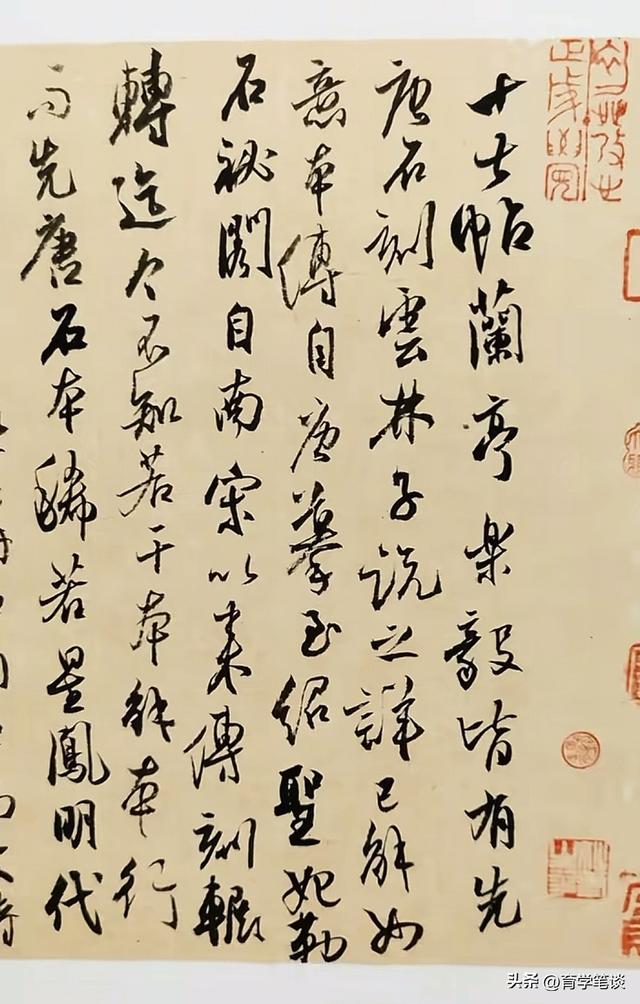 十七帖蘭亭樂毅皆有先
唐石刻雲林子説之詳已解如
意本傳自唐摹至紹聖始勒
石祕閣自南宋以來傳刻輾
轉迄今不知若干本解本行
而先唐石本稀若星鳳明代
头条 @育学笔谈